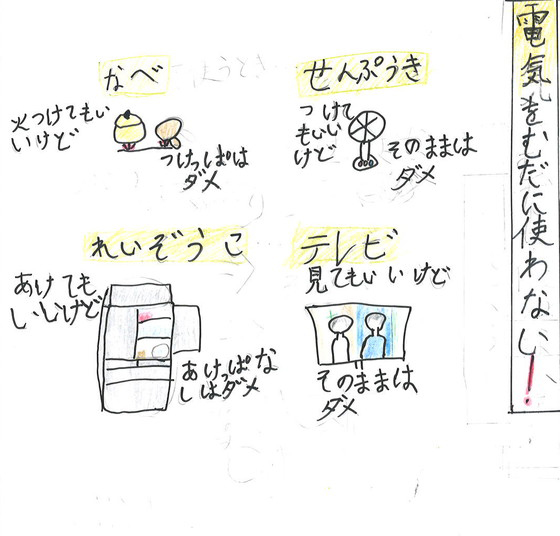 電気をむだに使わない!
なべ
火つけてもい
いけど
つけっぱは
ダメ
せんぷうき
つけて
もいい
けど
そのままは
ダメ
れいぞうこ
あけても
いいけど
あけっぱな
しはダメ
テレビ
見てもいいけど
そのままは
ダメ